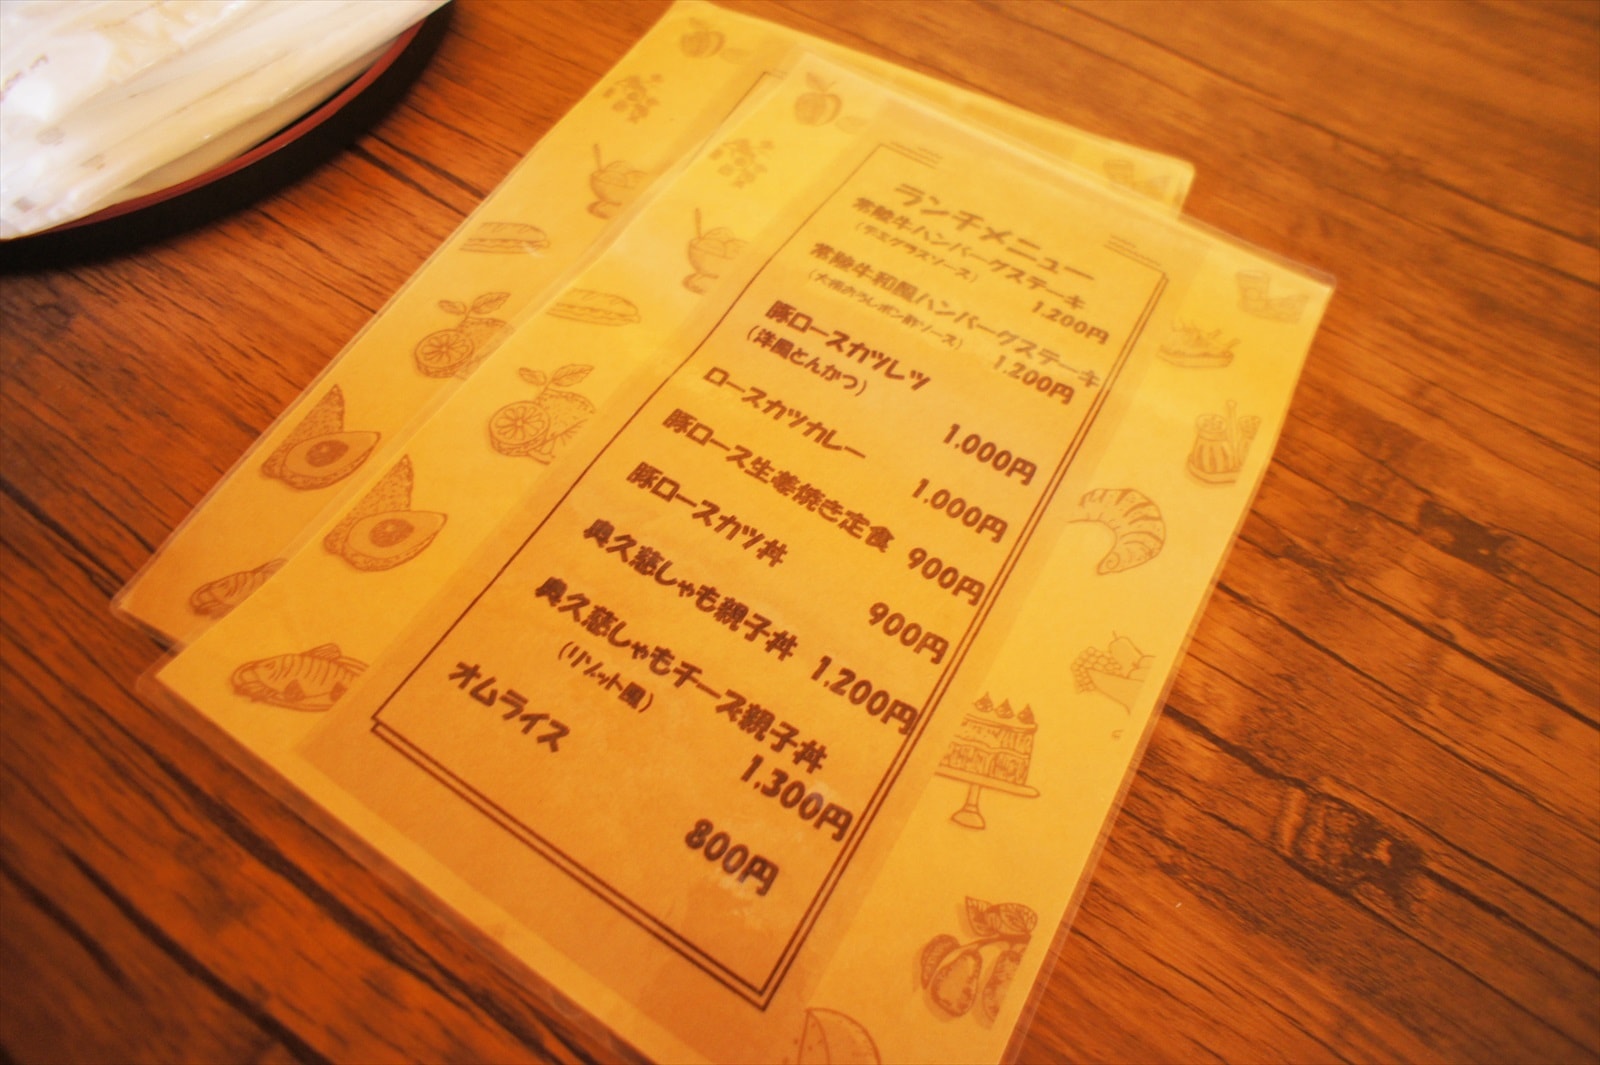 ランチメニュー
常陸牛ハンバーグステーキ
(デミグラスソース) 1.200円
常陸牛和風ハンバーグステーキ
(大根おろしポン酢ソース) 1.200円
豚ロースカツレツ
(洋風とんかつ) 1.000円
ロースカツカレー 1.000円
豚ロース生姜焼き定食 900円
豚ロースカツ丼 900円
奥久慈しゃも親子丼 1.200円
奥久慈しゃもチーズ親子丼
(リゾット風) 1.300円
オムライス 800円